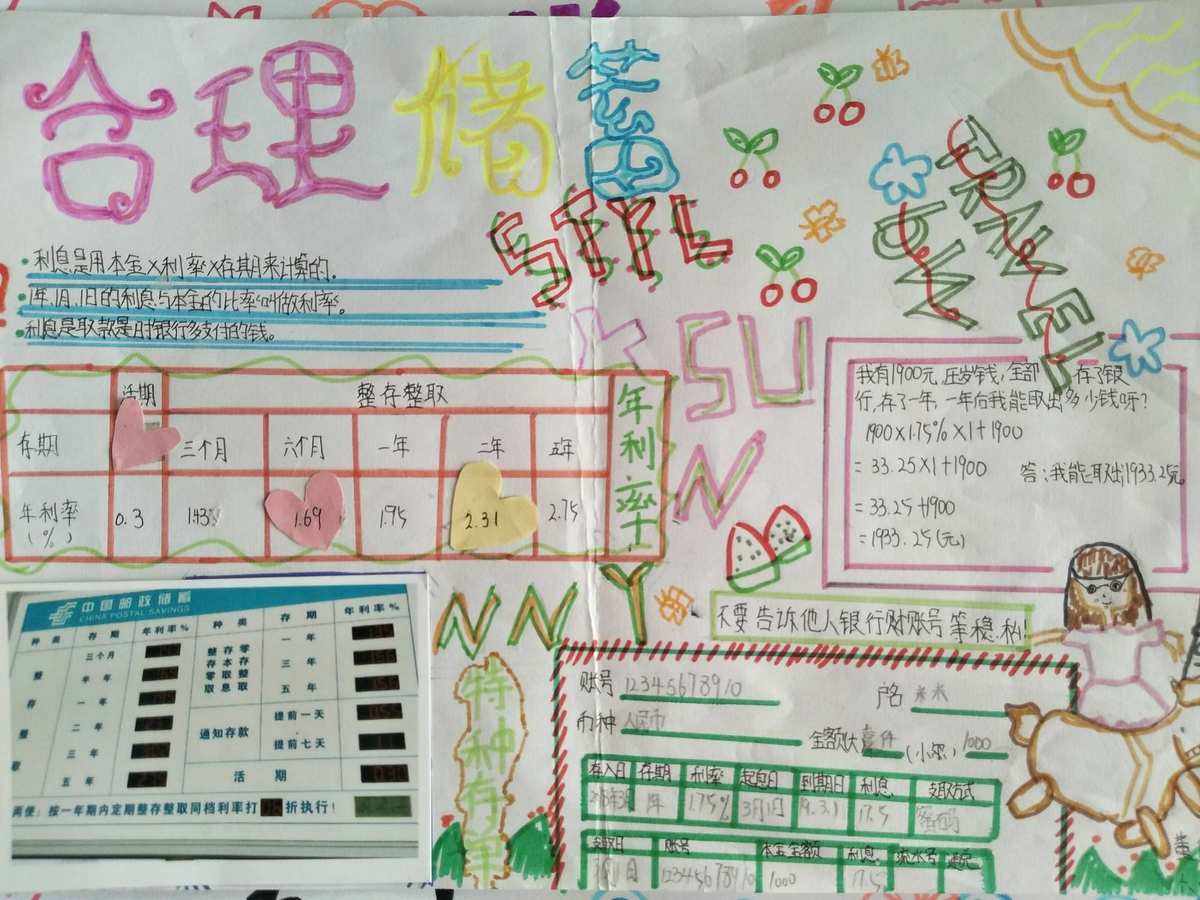 合理储蓄
STYL
TRAVEL
DW
•利息是用本金×利率×存期来计算的。
•1年、1月、1日的利息与本金的比率叫做利率。
•利息是取款是时银行多支付的钱。
SUN
NNY
活期 整存整取
存期 三个月 六个月 一年 二年
年利率(%) 0.3 1.43 1.69 1.95 2.31 2.75
年利率
我有1900元压岁钱,全部存了银
行,存了一年,一年后我能取出多少钱呀?
1900×1.75%×1+1900
=33.25×1+1900
答:我能取出1933.25元
=33.25+1900
=1933.25(元)
不要告诉他人银行财账号等稳私!
中国邮政储蓄
CHINA POSTAL SAVINGS
种类 存期 年利率% 种类 存期 年利率%
整存整取 三个月 半年 一年 二年 三年 五年
整存零取 存本取息 一年 三年 五年
通知存款 提前一天 提前七天
活期
两便:按一年期内定期整存整取同档利率打 折执行!
特种存单
账号 12345678910 户名
币种 人民币 金额(大 (小写) 1000
存入日 存期 利率 起息日 到期日 利息 支取方式
1年 1.75% 3月1日 19.3.1 17.5 密码
支取日 账号 本金金额 利息 流水号
12345678910 1000 17.5